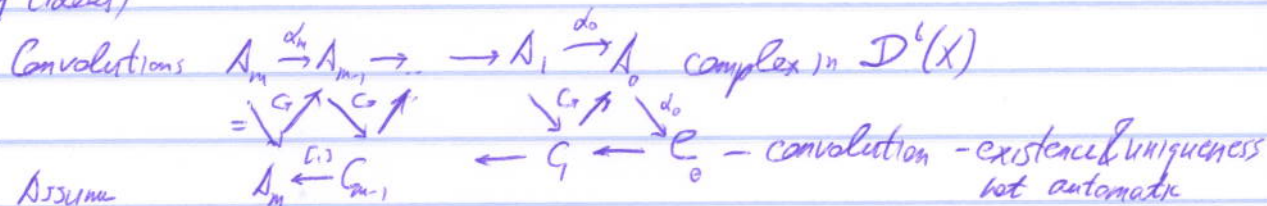 Convolutions A_m →^{α_m} A_{m-1} → .. → A_1 →^{α_0} A_0 complex in D^b(X)
= ↘ G ↗ ↘ G ↗ ↘ G ↗ ↘ α_0
A_m ←^{[1]} C_{m-1} ← C_1 ← C_0 – convolution – existence & uniqueness
Assume not automatic